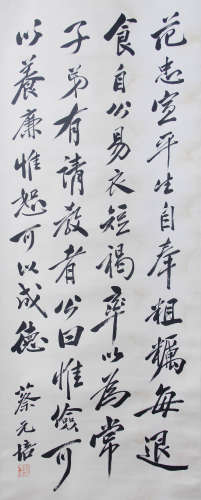 范忠宣平生自奉粗粝每退
食自公易衣短褐率以為常
子弟有請教者公曰惟儉可
以養廉惟恕可以成德
蔡元培